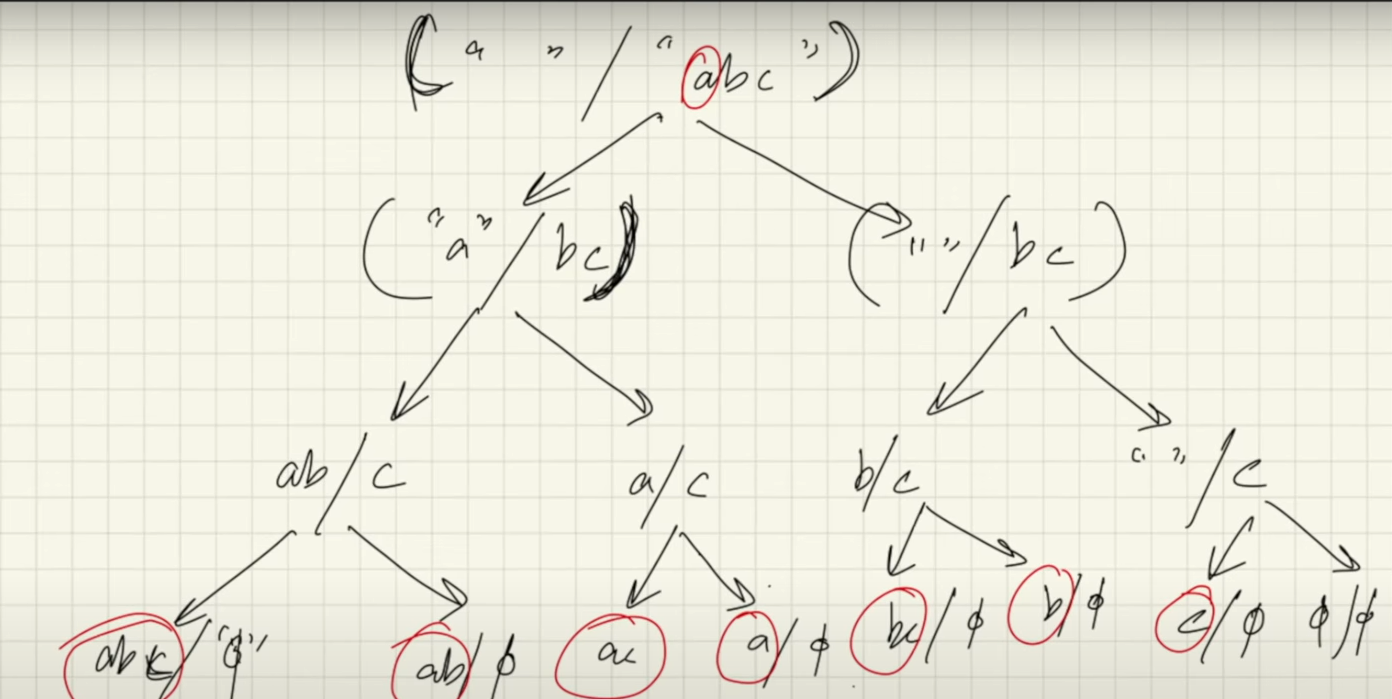 (" " / "abc")
("a" / bc) (" " / bc)
ab/c a/c b/c " "/c
abc/"ϕ" ab/ϕ ac a/ϕ bc/ϕ b/ϕ c/ϕ ϕ/ϕ